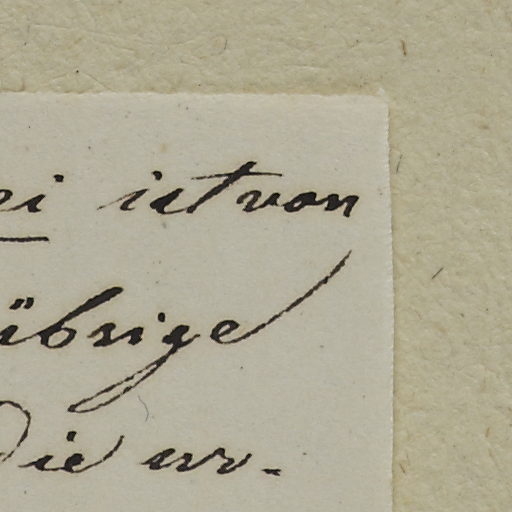 ei ist von
übrige
die er-